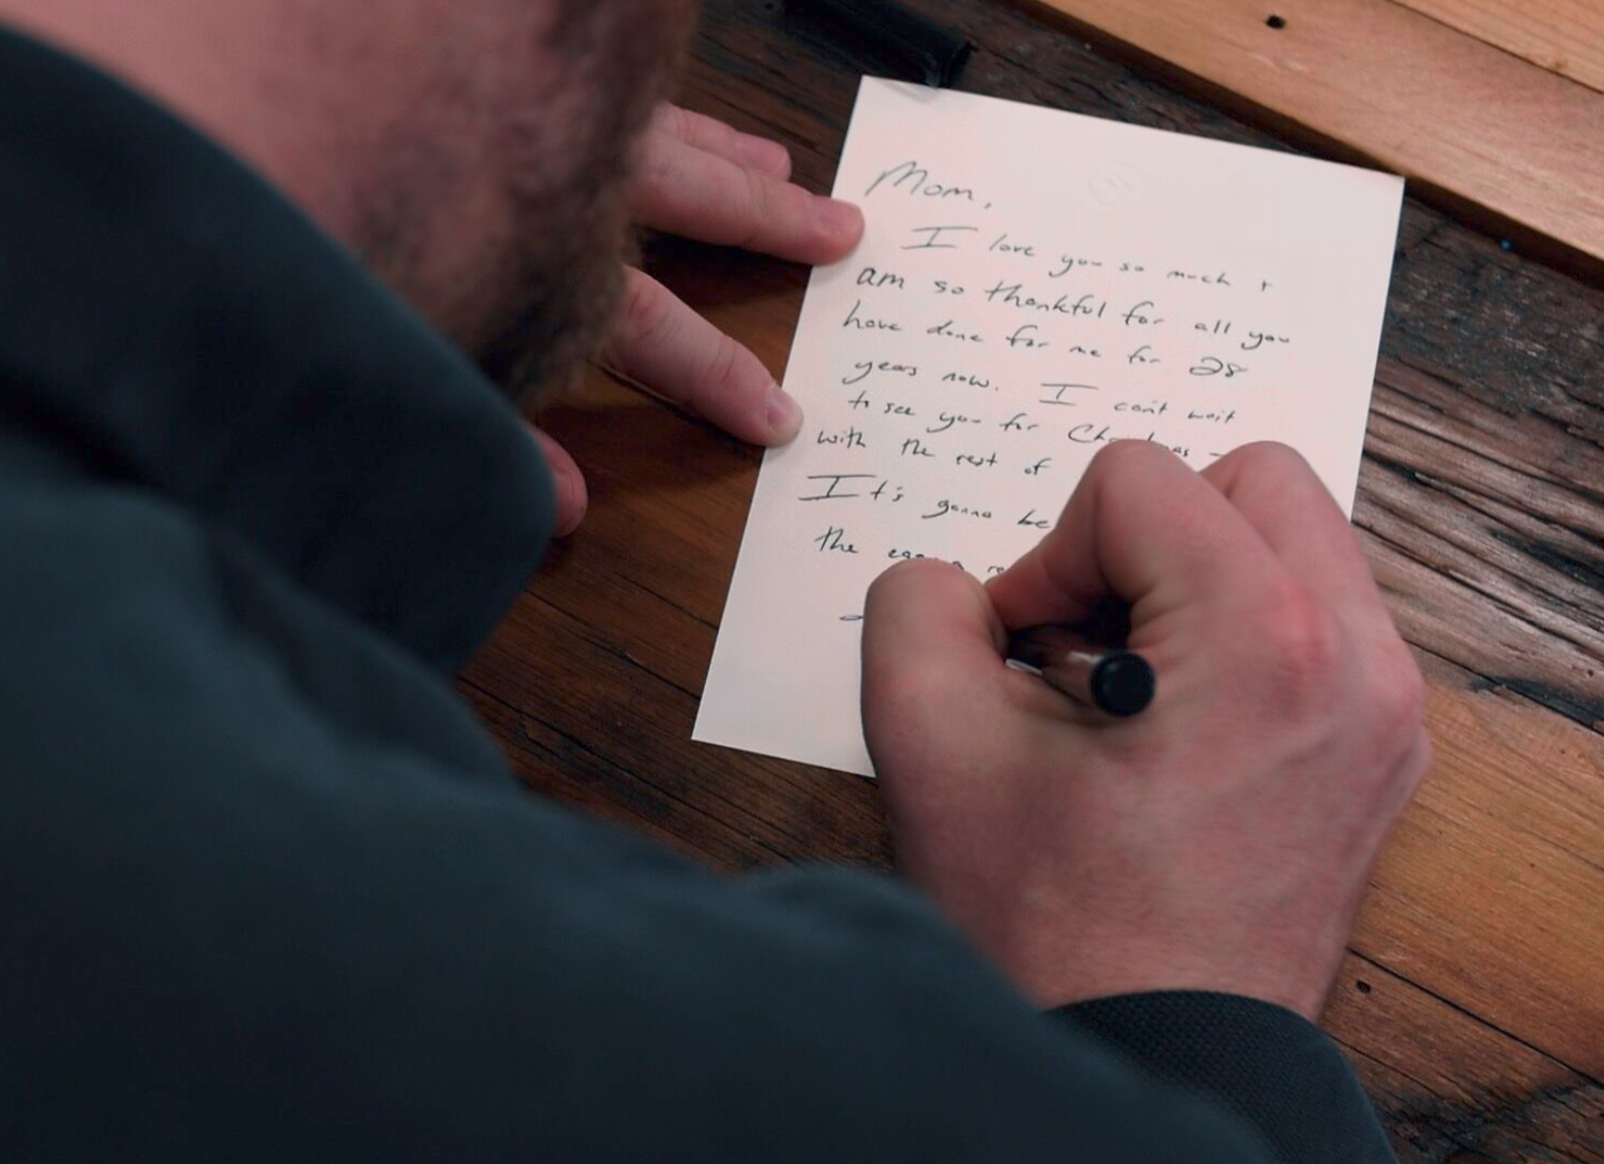 Mom,
I love you so much +
am so thankful for all you
have done for me for 28
years now. I can't wait
to see you for Christmas
with the rest of
It's gonna be
the